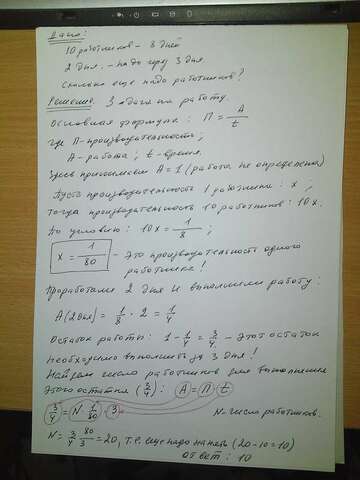 Дано:
10 работников - 8 дней
2 дня. - надо 3 дня.
Сколько еще надо работников?
Решение. Задача на работу.
Основная формула: П = A/t
где П - производительность;
A - работа; t - время.
Здесь принимаем A = 1 (работа не определена)
Пусть производительность 1 работника: x;
Тогда производительность 10 работников: 10x.
По условию: 10x = 1/8;
x = 1/80 - это производительность одного
работника!
Проработали 2 дня и выполнили работу:
A(2дня) = 1/8 · 2 = 1/4
Остаток работы: 1 - 1/4 = 3/4 - этот остаток
необходимо выполнить за 3 дня!
Найдем число работников для выполнения
этого остатка (3/4): A = П · t
3/4 = N · 1/80 · 3 N - число работников.
N = 3/4 · 80/3 = 20, т.е. еще надо нанять (20-10=10)
ответ: 10